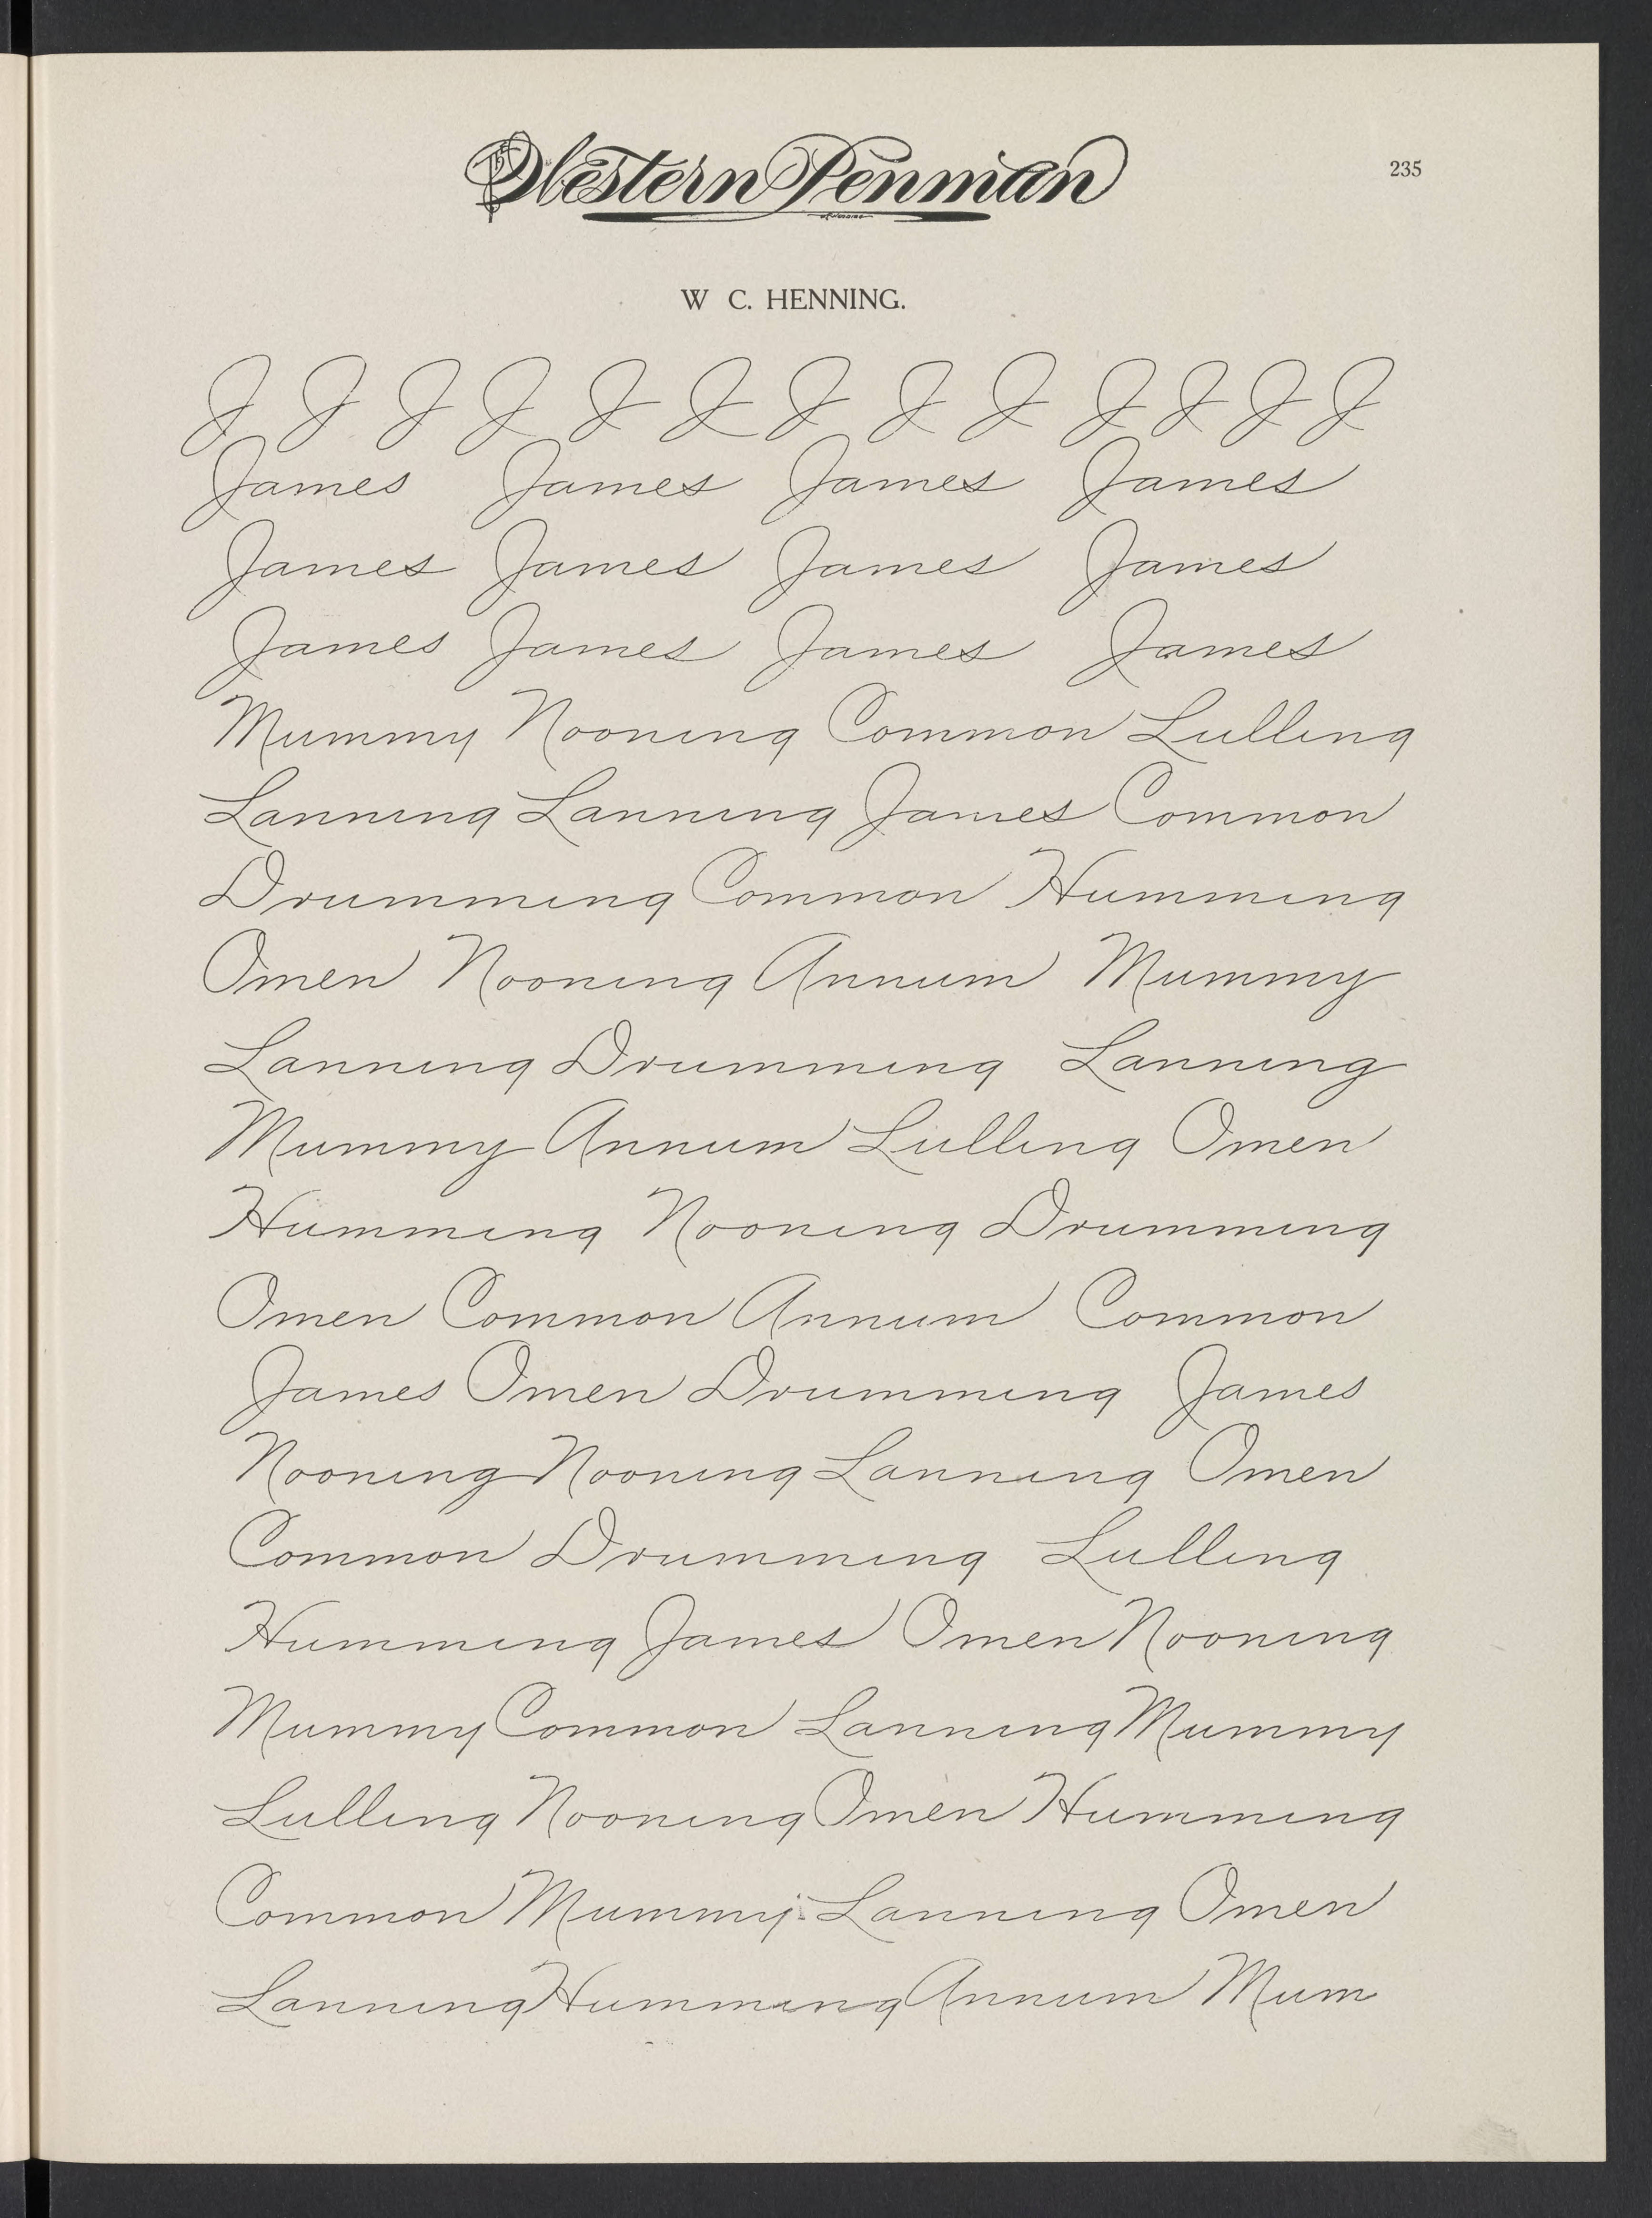 The Western Penman
235
W C. HENNING.
J J J J J J J J J J J J J
James James James James
James James James James
James James James James
Mummy Nooning Common Lulling
Lanning Lanning James Common
Drumming Common Humming
Omen Nooning Annum Mummy
Lanning Drumming Lanning
Mummy Annum Lulling Omen
Humming Nooning Drumming
Omen Common Annum Common
James Omen Drumming James
Nooning Nooning Lanning Omen
Common Drumming Lulling
Humming James Omen Nooning
Mummy Common Lanning Mummy
Lulling Nooning Omen Humming
Common Mummy Lanning Omen
Lanning Humming Annum Mum